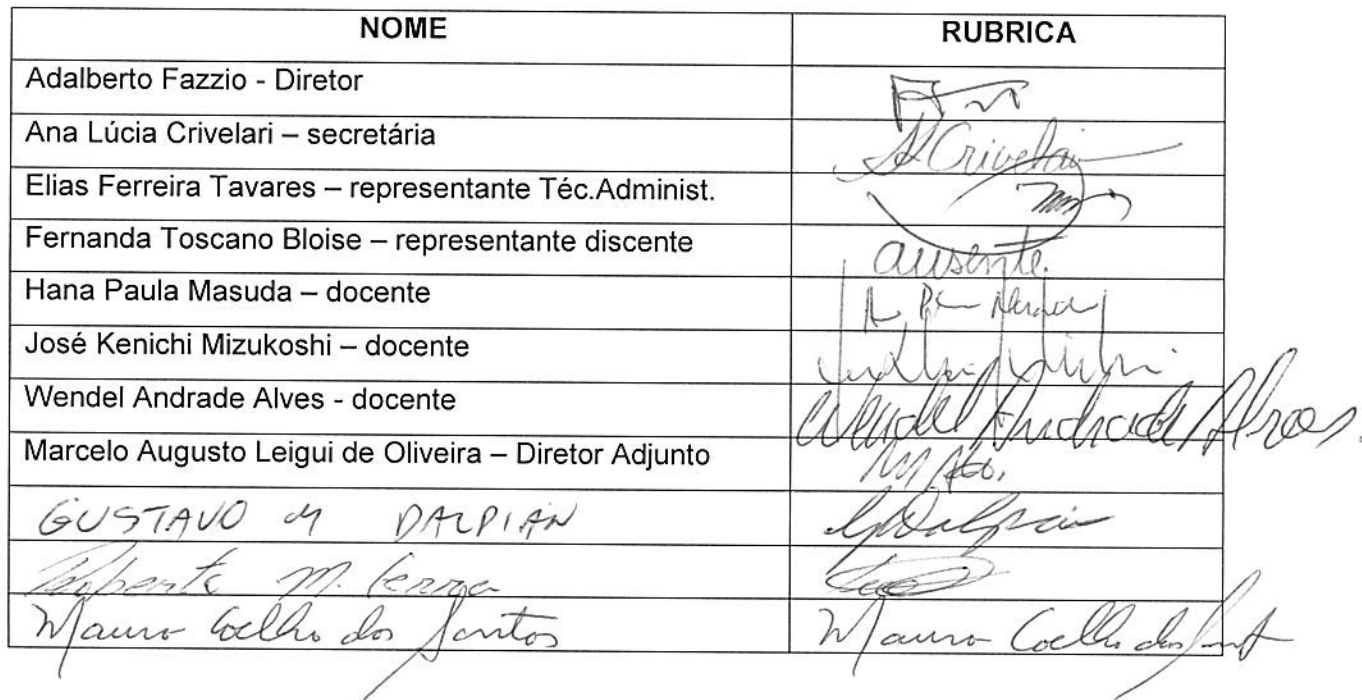 NOME RUBRICA
Adalberto Fazzio - Diretor
Ana Lúcia Crivelari – secretária A Crivelari
Elias Ferreira Tavares – representante Téc.Administ.
Fernanda Toscano Bloise – representante discente ausente.
Hana Paula Masuda – docente
José Kenichi Mizukoshi – docente
Wendel Andrade Alves - docente Wendel Andrade Alves.
Marcelo Augusto Leigui de Oliveira – Diretor Adjunto
GUSTAVO M DALPIAN GDalpian
M.
Mauro Coelho dos Santos Mauro Coelho dos Sant